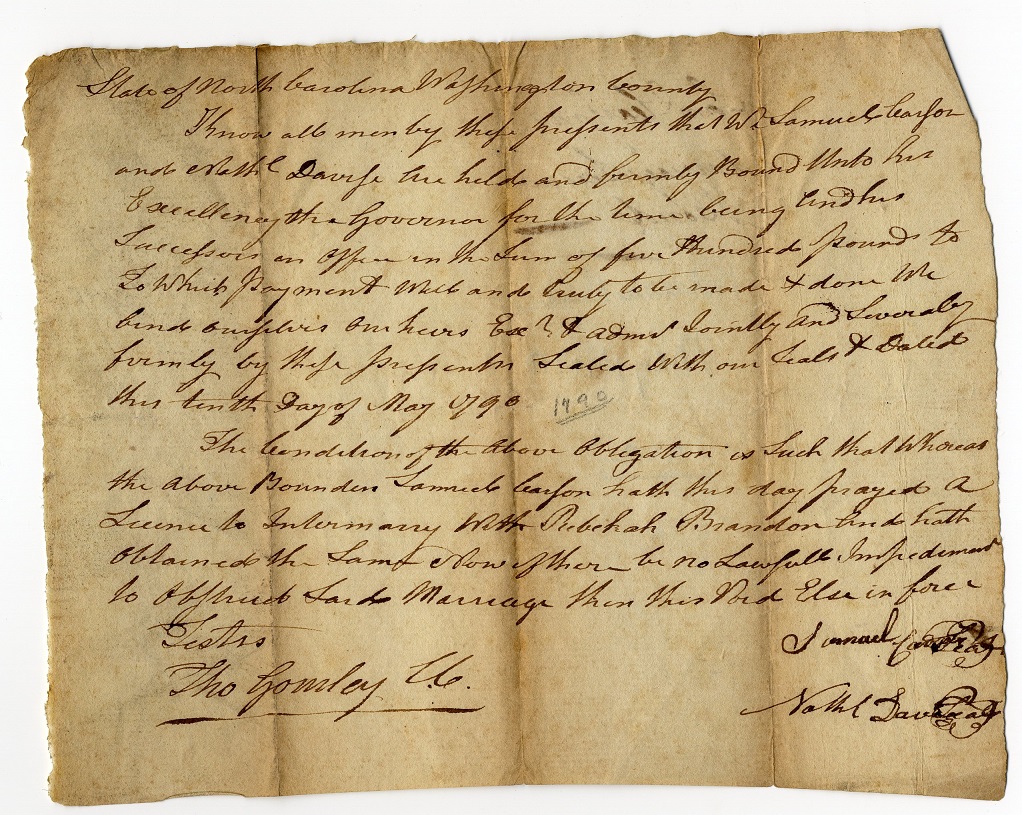 State of North Carolina Washington County
Know all men by these pressents that We Samuel Carson
and Nathl Davise are held and firmly Bound Unto his
Excellency the Governor for the time being And his
Successors in Office in the Sum of five Hundred pounds to
To Which payment Well and truly to be made & done We
bind ourselves our heirs Exrs & admrs Jointly And Severaly
firmly by these pressents Sealed With our Seals & Dated
this tenth Day of May 1790 1790
The Condition of the Above Obligation is Such that Whereas
the Above Bounden Samuel Carson hath this day prayed A
Licence to Intermarry With Rebekah Brandon And hath
Obtained the Same Now if there be no Lawfull Impediment
to Obstruct Said Marriage then this Void Else in force
Testis
Samuel Carson Seal
Tho Gomley C.C.
Nathl Davis Seal